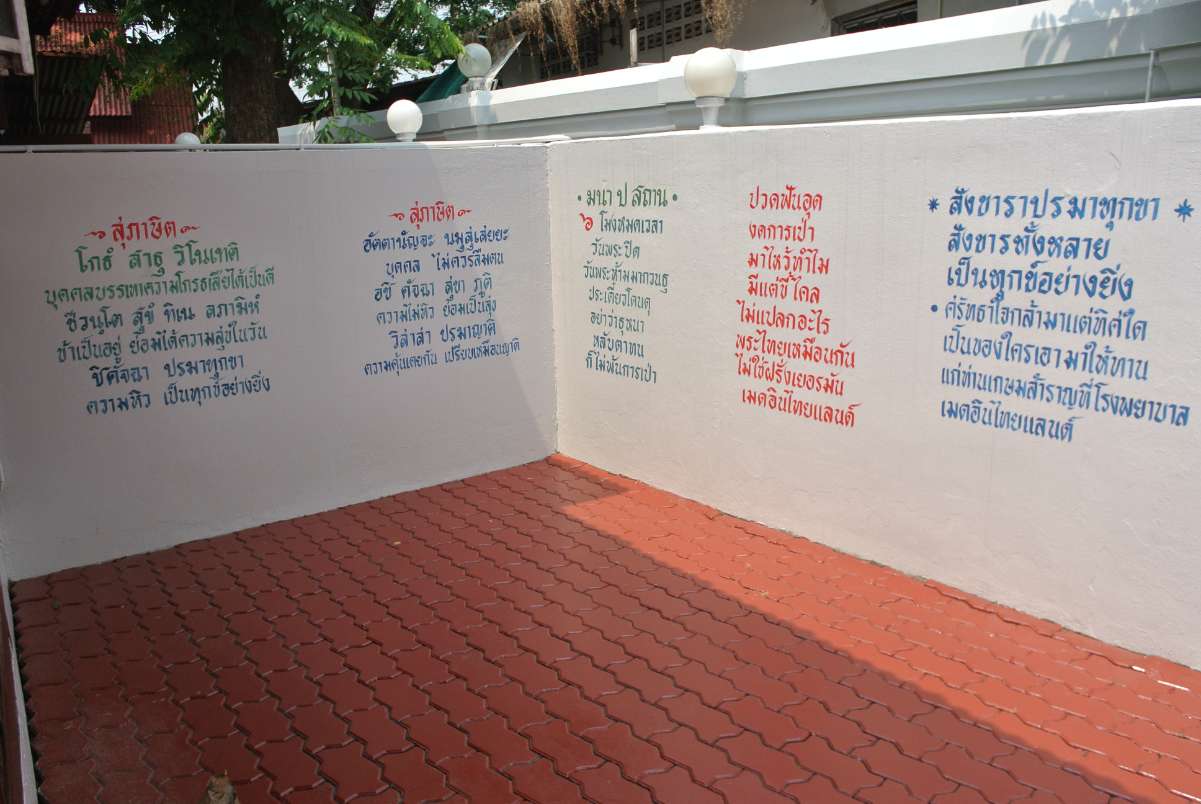 สุ่ภาษิต
โกธํ สาธุ วิโนเทติ
บุคคลบรรเทาความโกรธเสียได้เป็นดี
ชีวนฺโต สุขํ ทิเน ลภามิหํ
ข้าเป็นอยู่ ย่อมได้ความสุขในวัน
ชิคัจฉา ปรมาทุกขา
ความหิว เป็นทุกข์อย่างยิ่ง
สุ่ภาษิต
อัตตานัญจะ
บุคคล ไม่ควรลืมตน
ความไม่หิว ย่อมเป็นสุข
วิสาสา ปรมาญาติ
ความคุ้นเคยกัน เปรียบเหมือนญาติ
• มนา ป สถาน •
๖ โมงหมดเวลา
วันพระปิด
วันพระห้ามมากวนฐ
ประเดี๋ยวโดนดุ
อย่าว่าธุหนา
หลับตาทน
ก็ไม่พ้นการเป่า
ปวดฟันอุด
งดการเป่า
มาไหว้ทำไม
มีแต่ขี้ไคล
ไม่แปลกอะไร
พระไทยเหมือนกัน
ไม่ใช่ฝรั่งเยอรมัน
เมดอินไทยแลนด์
* สังขาราปรมาทุกขา *
สังขารทั้งหลาย
เป็นทุกข์อย่างยิ่ง
• ศรัทธาใจกล้ามาแต่ทิศใด
เป็นของใครเอามาให้ทาน
แก่ท่านเกษมสำราญที่โรงพยาบาล
เมดอินไทยแลนด์